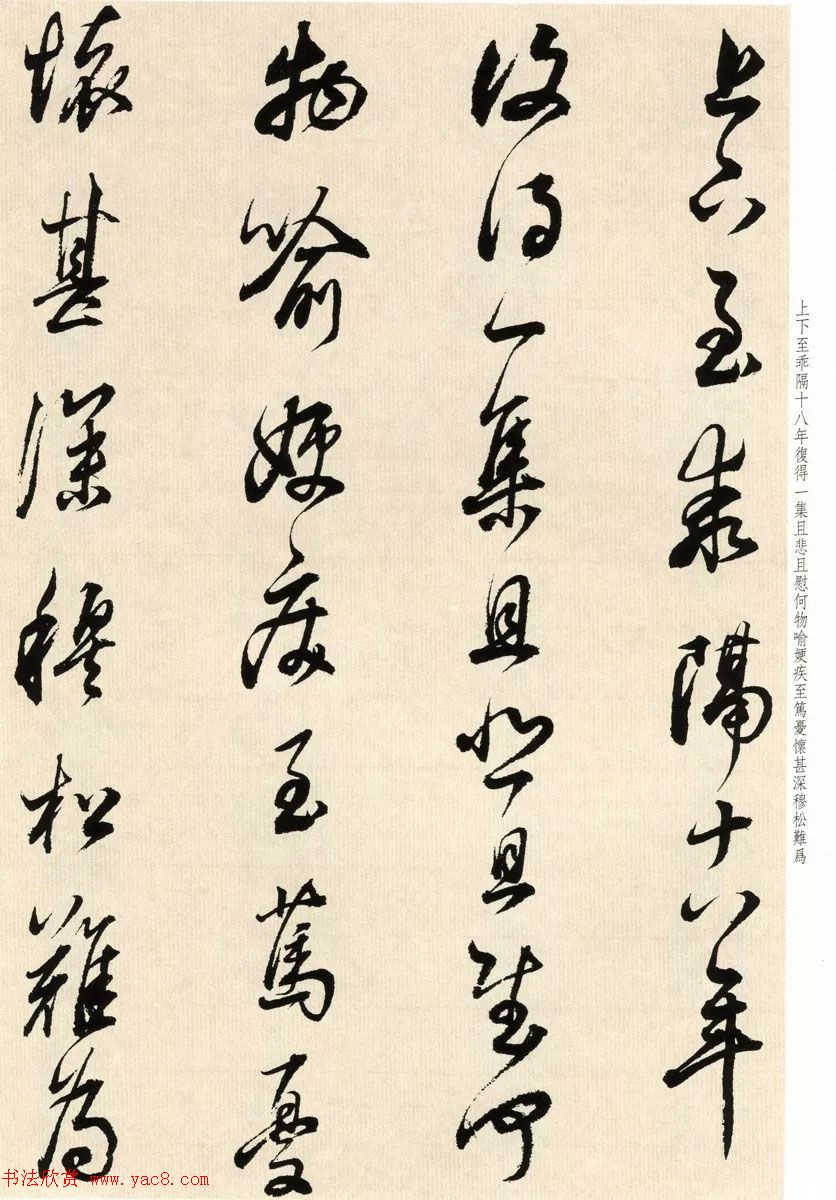 上下至乖隔十八年
復得一集且悲且慰何
物喻婹疾至篤憂
懷甚深穆松難為
上下至乖隔十八年復得一集且悲且慰何物喻婹疾至篤憂懷甚深穆松難爲
书法欣赏 www.yac8.com